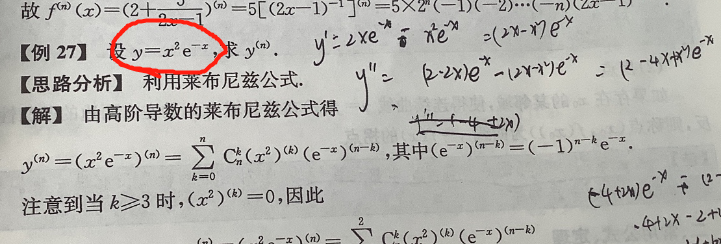 故 f⁽ⁿ⁾(x)=(2+5/(2x−1))⁽ⁿ⁾=5[(2x−1)⁻¹]⁽ⁿ⁾=5×2ⁿ(−1)(−2)⋯(−n)(2x−1)
【例 27】 设 y=x²e⁻ˣ,求 y⁽ⁿ⁾.
y'=2xe⁻ˣ − x²e⁻ˣ =(2x−x²)e⁻ˣ
【思路分析】 利用莱布尼兹公式.
y''= (2−2x)e⁻ˣ−(2x−x²)e⁻ˣ = (2−4x+x²)e⁻ˣ
【解】 由高阶导数的莱布尼兹公式得
y⁽ⁿ⁾=(x²e⁻ˣ)⁽ⁿ⁾=∑ₖ₌₀ⁿ Cₙᵏ(x²)⁽ᵏ⁾(e⁻ˣ)⁽ⁿ⁻ᵏ⁾,其中(e⁻ˣ)⁽ⁿ⁻ᵏ⁾=(−1)ⁿ⁻ᵏe⁻ˣ.
注意到当 k≥3 时,(x²)⁽ᵏ⁾=0,因此
(−4+2x)e⁻ˣ − (2−
−4+2x−2+4
(x²e⁻ˣ)⁽ⁿ⁾=∑² Cₙᵏ(x²)⁽ᵏ⁾(e⁻ˣ)⁽ⁿ⁻ᵏ⁾